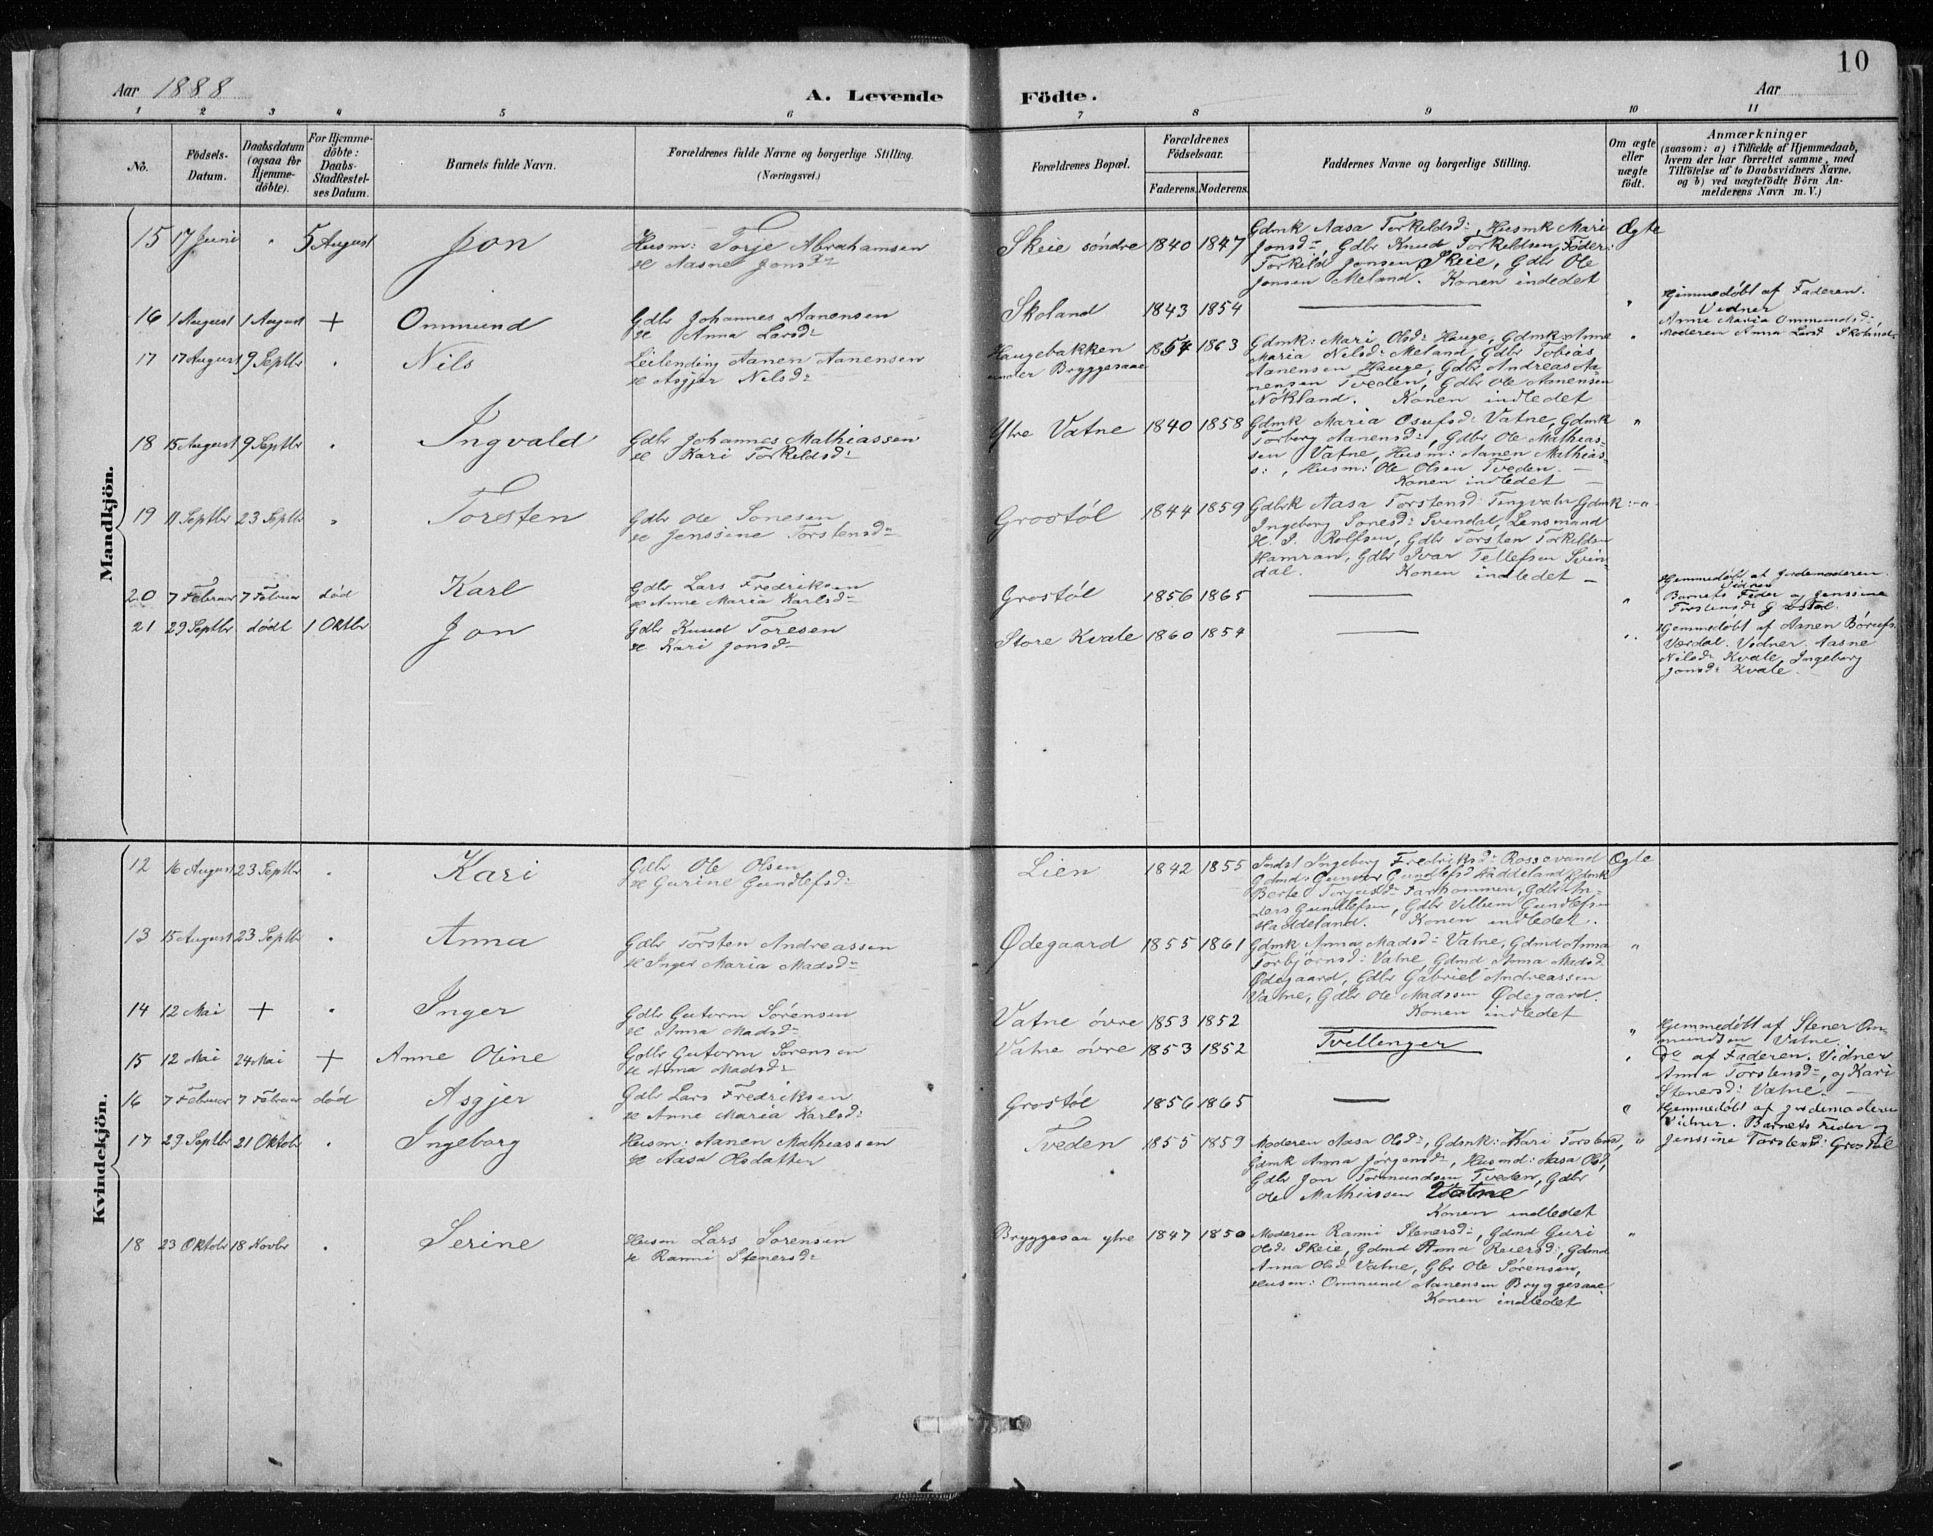 10
Aar 1888
A. Levende Födte.
Aar
1 2 3 4 5 6 7 8 9 10 11
No.
Födsels-Datum.
Daabsdatum (ogsaa for Hjemmedöbte).
For Hjemmedöbte: Daabs-Stadfæstelses Datum.
Barnets fulde Navn.
Forældrenes fulde Navne og borgerlige Stilling.
(Næringsvei.)
Forældrenes Bopæl.
Forældrenes Födselsaar.
Faderens. Moderens.
Faddernes Navne og borgerlige Stilling.
Om ægte eller uægte födt.
Anmærkninger
(saasom: a) i Tilfælde af Hjemmedaab, hvem der har forrettet samme, med Tilföielse af to Daabsvidners Navne, og b) ved uægtefödte Börn Anmelderens Navn m. V.)
Mandkjön.
15 17 Juni " 5 August Jon
Husm: Torje Abrahamsen
H Aasne Jonsdr
Skeie söndre 1840 1847
Gdmk Aasa Torkeldsd:, Husmk Mari
Jonsd:, Gdbr Knud Torkeldsen, Föder:
Torkild Jonsen Skeie, Gdbr Ole
Jonsen Meland. Konen indledet
Ægte
16 1 August 1 August + Ommund
Gdbr Johannes Aanensen
H Anna Larsd:
Skoland 1843 1854 — "
Hjemmedöbt af Faderen.
Vidner
Anne Maria Ommundsd:
Moderen Anna Larsd Skoland
17 17 August 9 Septbr " Nils
Leilending Aanen Aanensen
H Asgjer Nilsd:
Haugebakken under Bryggesaae 1857 1863
Gdmk: Mari Olsd: Hauge, Gdmk: Anne
Maria Nilsd: Meland, Gdbr Tobias
Aanensen Hauge, Gdbr Andreas Aa-
nensen Tveden, Gdbr Ole Aanensen
Nökland. Konen indledet
"
18 15 August 9 Septbr " Ingvald
Gdbr Johannes Mathiassen
H Kari Torkeldsd:
Ytre Vatne 1840 1858
Gdmk Maria Osufsd: Vatne, Gdmk
Torborg Aanensd:, Gdbr Ole Mathias-
sen Vatne, Husm: Aanen Mathias-
s:, Husm: Ole Olsen Tveden. —
Konen indledet —
"
19 11 Septbr 23 Septbr " Torsten
Gdbr Ole Sonesen
H Jenssine Torstensd:
Grostöl 1844 1859
Gdbrk Aasa Torstensd: Tingvatn Gdmk:
Ingeborg Sonesd: Svendal, Lensmand
H. S. Rolfsen, Gdbr Torsten Torkildsen
Hamran, Gdbr Ivar Tellefsen Svin-
dal. Konen indledet —
"
20 7 Februar 7 Februar död Karl
Gdbr Lars Fredriksen
H Anne Maria Karlsd:
Grostöl 1856 1865 — "
Hjemmedöbt af Jordemoderen.
Vidner
Barnets Fader og Jenssine
Torstensd: Grostöl.
21 29 Septbr dödt 1 Oktbr Jon
Gdbr Knud Toresen
H Kari Jonsd:
Store Kvale 1860 1854 — "
Hjemmedöbt af Aanen Börufs.
Værdal. Vidner. Aasne
Nilsd: Kvale, Ingeborg
Jonsd: Kvale.
Kvindekjön.
12 16 August 23 Septbr " Kari
Gdbr Ole Olsen
H Gurine Gundlefsd:
Lien 1842 1855
Indst Ingeborg Fredriksd: Rossevand
Gdmd: Gunvor Gundlefsd Haddeland, Gdmk
Berte Torjusd: Farhommen, Gdbr An-
ders Gundlefsen, Gdbr Villum Gundlefsn
Haddeland. Konen indledet.
Ægte
13 15 August 23 Septbr " Anna
Gdbr Torsten Andreassen
H Inger Maria Madsd:
Ödegaard 1855 1861
Gdmk Anna Madsd: Vatne, Gdmd Anna
Torbjörnsd: Vatne, Gdmd Anna Madsd
Ödegaard, Gdbr Gabriel Andreassen
Vatne, Gdbr Ole Madssen Ödegaard.
Konen indledet
"
14 12 Mai + " Inger
Gdbr Gutorm Sörensen
H Anna Madsd:
Vatne övre 1853 1852
"
Hjemmedöbt af Stener Om-
mundsen Vatne.
Tvillinger
15 12 Mai 24 Mai + Anne Oline
Gdbr Gutorm Sörensen
H Anna Madsd:
Vatne övre 1853 1852
"
Do af Faderen. Vidner
Anna Torstensd:, og Kari
Stenersd: Vatne. —
16 7 Februar 7 Februar död Asgjer
Gdbr Lars Fredriksen
H Anne Maria Karlsd:
Grostöl 1856 1865 — "
Hjemmedöbt af Jordemoderen
Vidner. Barnets Fader og
Jenssine Torstensd: Grostöl
17 29 Septbr 21 Oktobr " Ingeborg
Husm: Aanen Mathiassen
H Aasa Olsdatter
Tveden 1855 1859
Moderen Aasa Olsd:, Gdmk: Kari Torstensd,
Gdmk Anna Jörgensd:, Husmd: Aasa Olsd,
Gdbr Jon Tormundsen Tveden, Gdbr
Ole Mathiassen Vatne
Konen indledet
"
18 23 Oktobr 18 Novbr " Serine
Husm Lars Sörensen
H Ranni Stenersd:
Bryggesaa ytre 1847 1850
Moderen Ranni Stenersd:, Gdmd Guri
Olsd: Skeie, Gdmd Anna Reiersd:, Gdmd
Anna Olsd Vatne, Gbr Ole Sörensen,
Husm: Ommund Aanensen Bryggesaae
Konen indledet
"